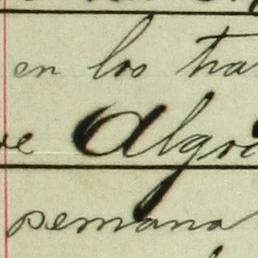 en los tra
Algo
semana